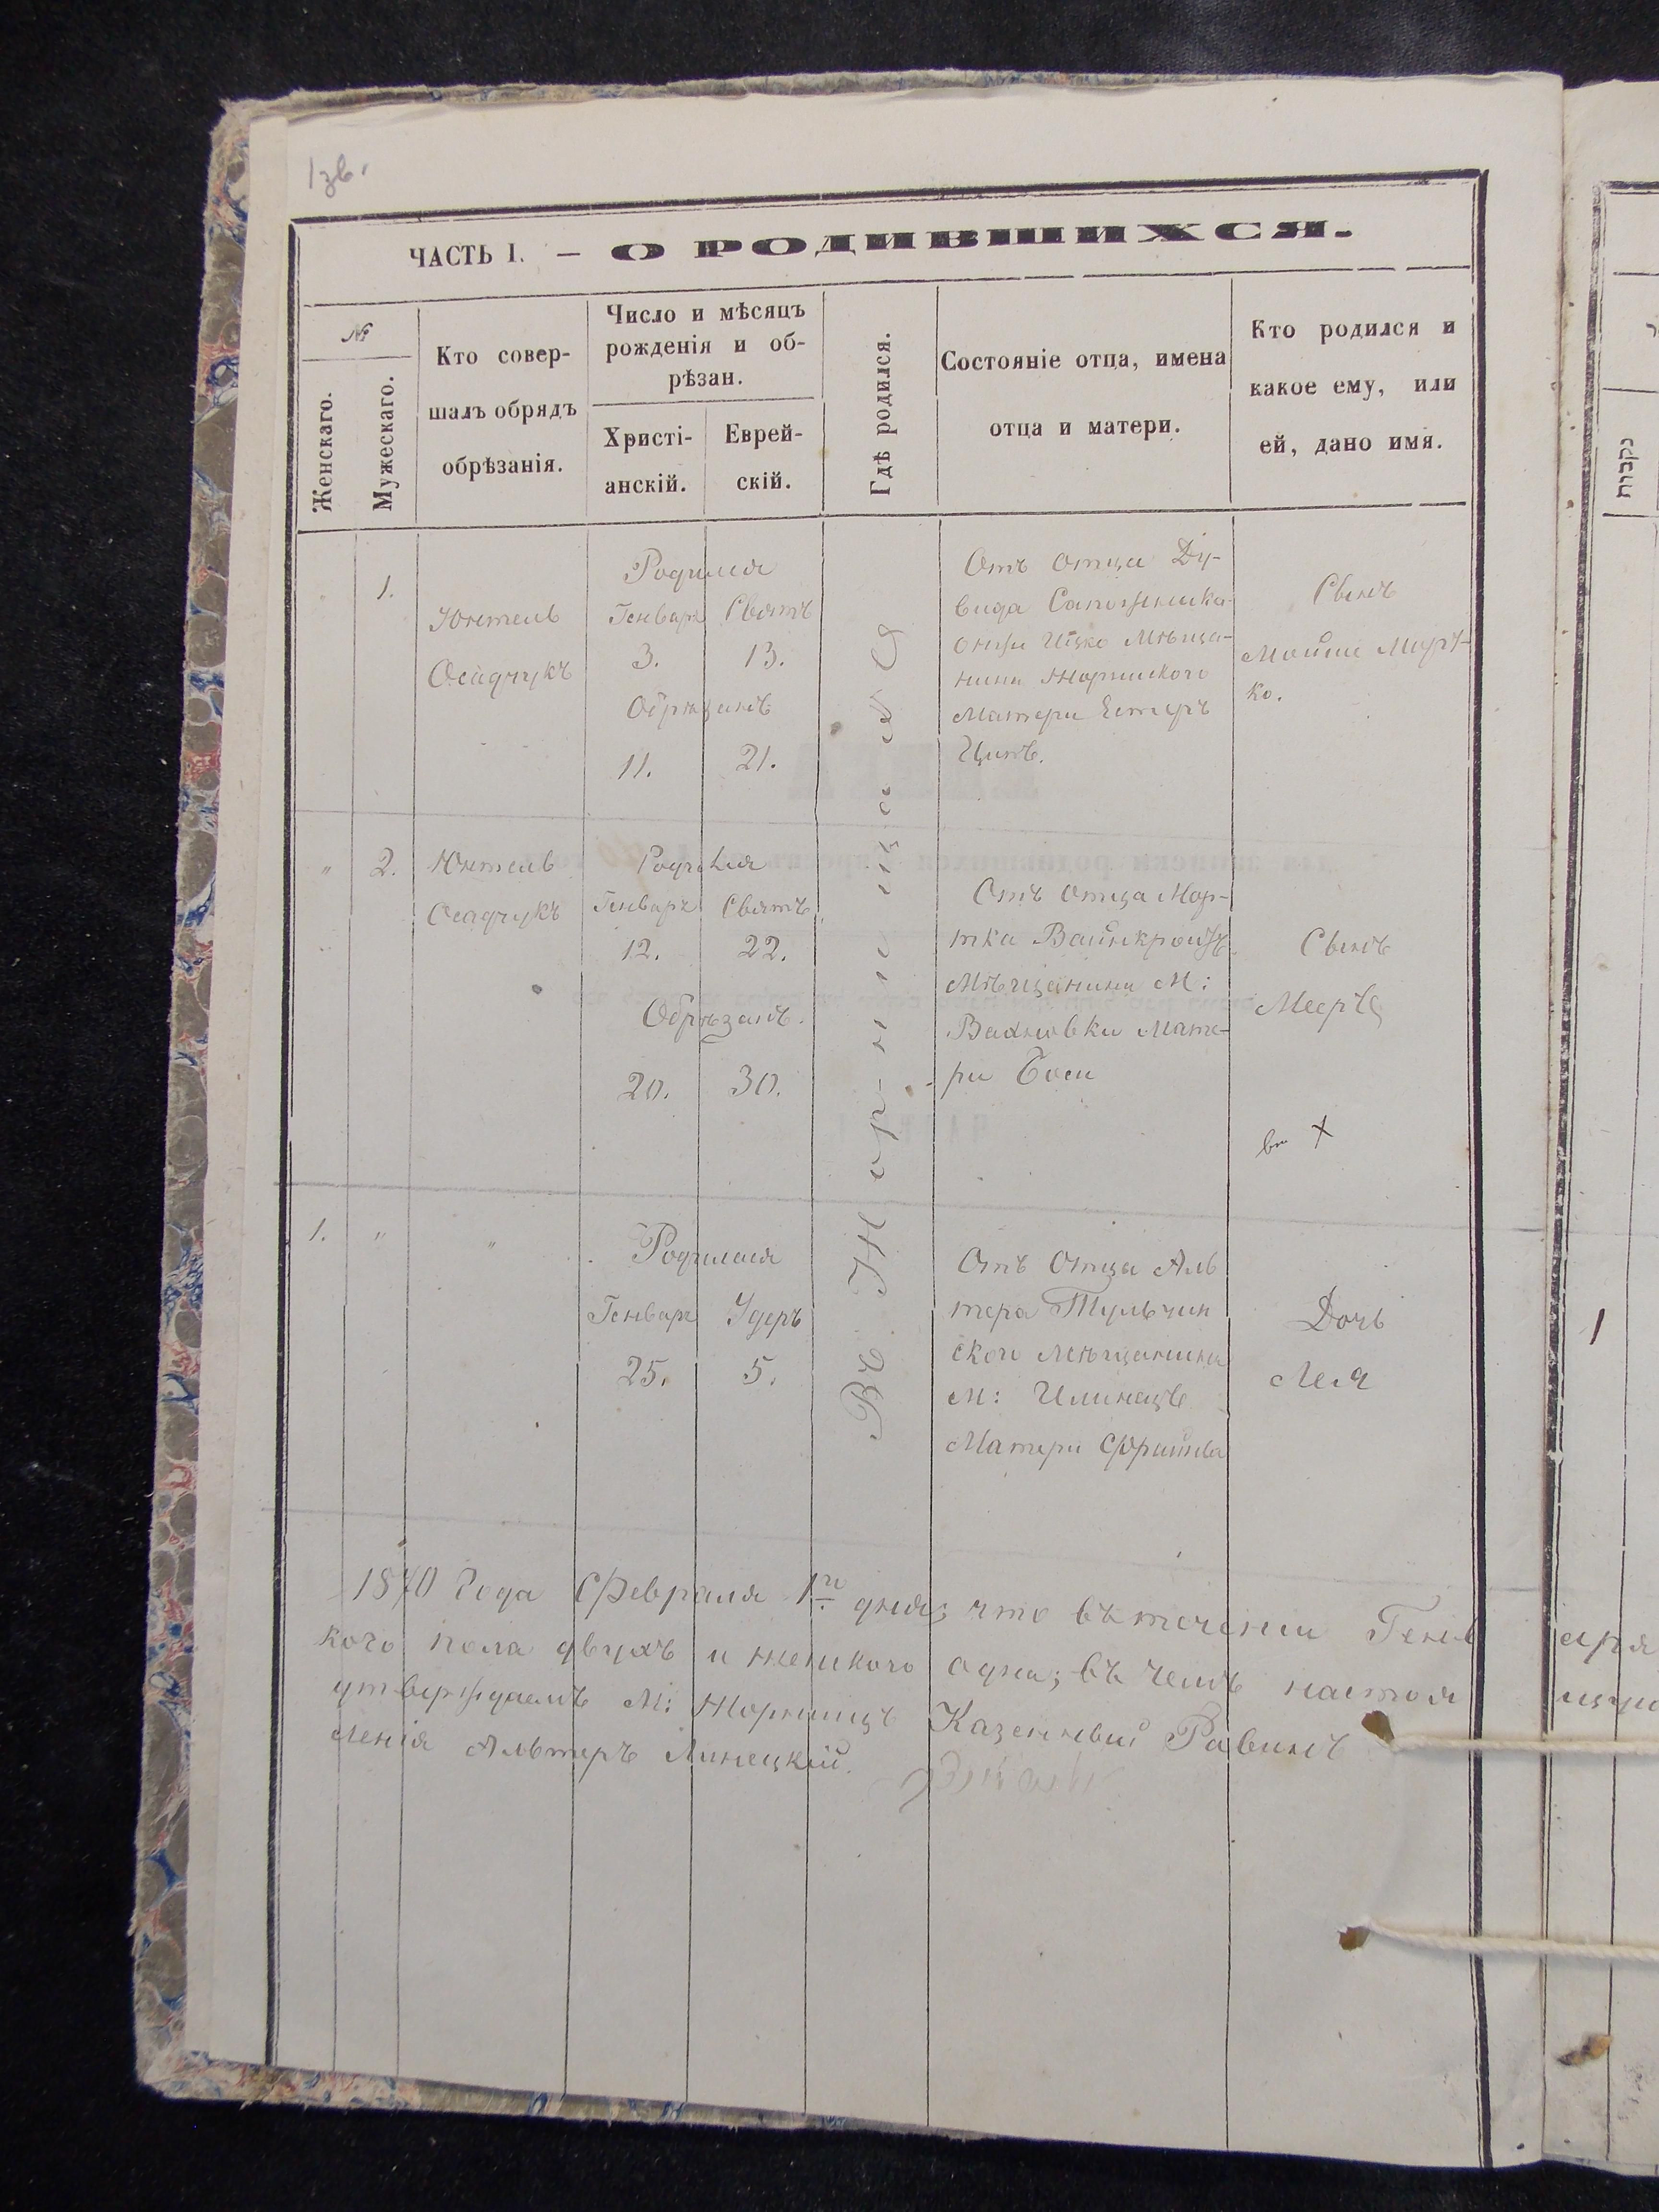 1зв.
ЧАСТЬ I. — О РОДИВШИХСЯ.
№
Женскаго.
Мужескаго.
Кто совер-
шалъ обрядъ
обрѣзанія.
Число и мѣсяцъ
рожденія и об-
рѣзан.
Христі-
анскій.
Еврей-
скій.
Гдѣ родился.
Состояніе отца, имена
отца и матери.
Кто родился и
какое ему, или
ей, дано имя.
נקבות
1.
Юнтель
Осадчукъ
Родился
Генваря
3.
Обрѣзанъ
11.
Сватъ
13.
21.
Отъ отца Ду-
вида Сапожника
Ицко Мѣща-
нина Жорнискаго
Матери Естеръ
Сынъ
Мойше
ко.
" 2.
Юнтель
Осадчукъ
Родился
Генваря
12.
Обрѣзанъ.
20.
Сватъ
22.
30.
Отъ отца Мор-
тка Вайнкройтъ
Мѣщанина М:
Вахновки Мате-
ри Боси
Сынъ
Мееръ
X
1. " "
Родилася
Генваря
25.
Удеръ
5.
Отъ отца Аль
тера Тульчин
ской Мѣщанина
М: Илинецъ
Матери
Дочь
Лея
1
1870 года Февраля 1го дня; что въ теченіи Генв аря
кого пола двухъ и женского одна; въ чемъ настоя
утверждаемъ М: Жорнищъ Казенный Равинъ
Альтеръ Линецкій.